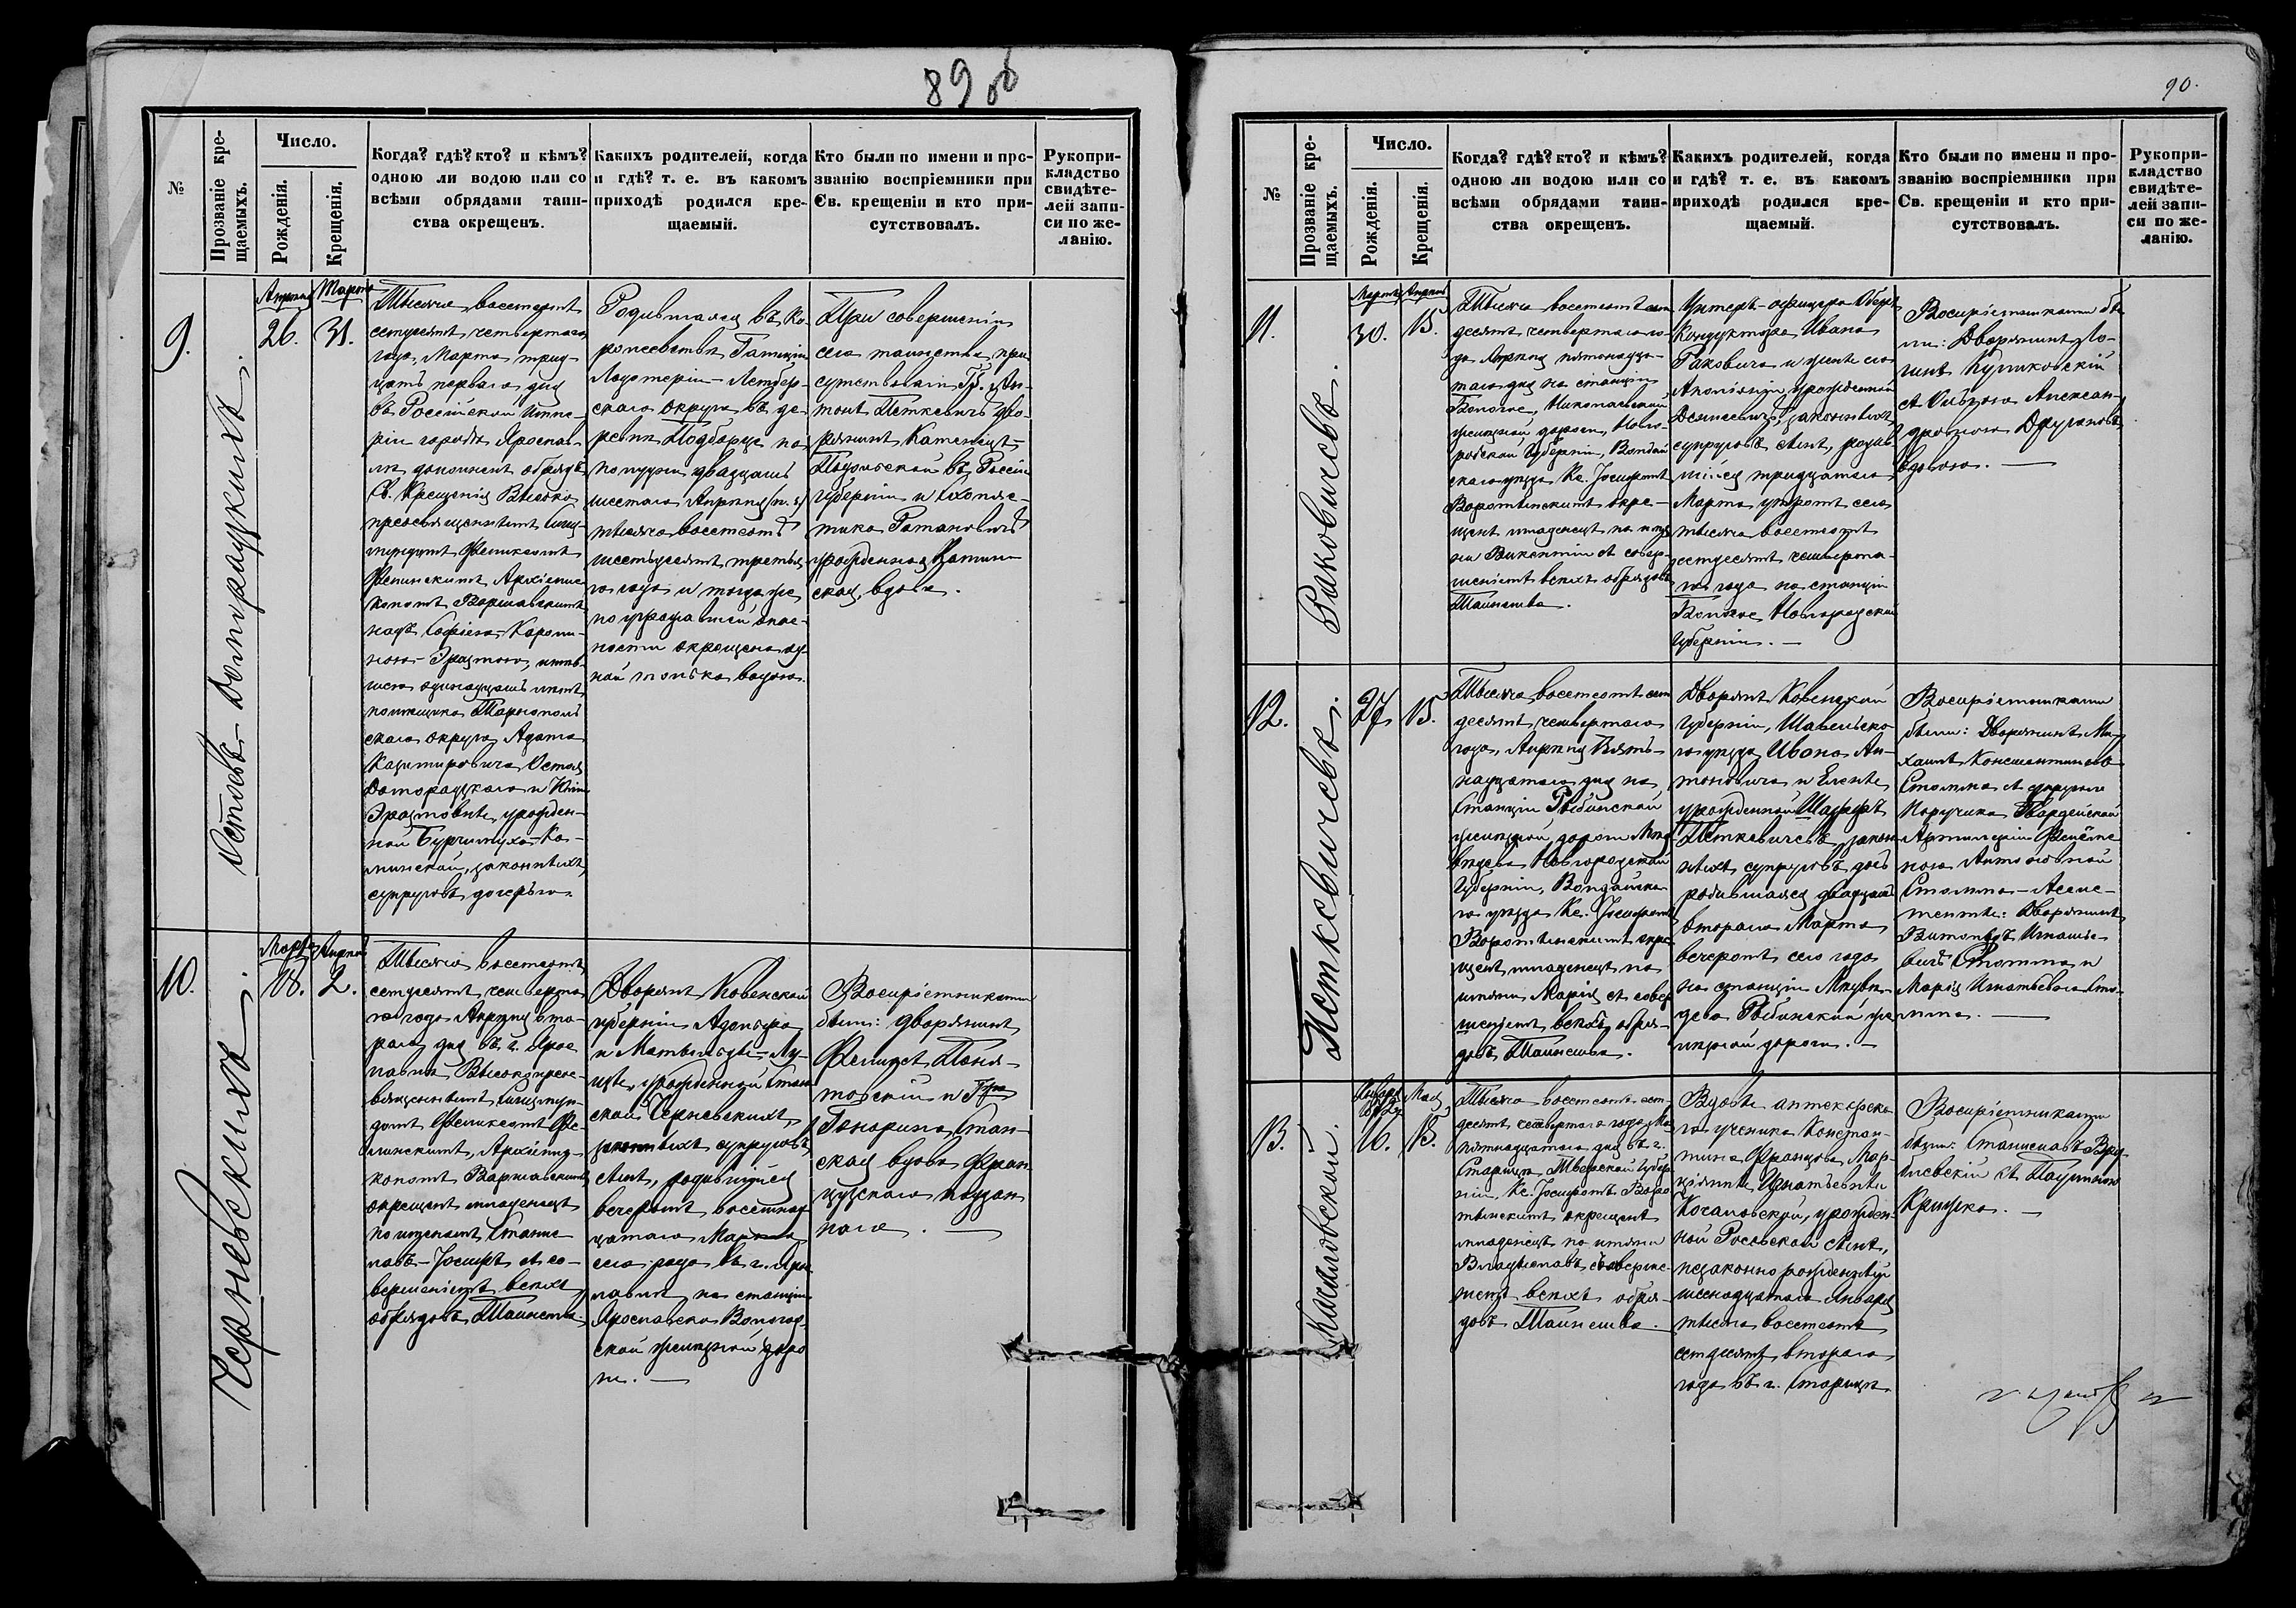 89 об
№
Прозваніе кре-
щаемыхъ.
Число.
Рожденія.
Крещенія.
Когда? гдѣ? кто? и кѣмъ?
одною ли водою или со
всѣми обрядами таин-
ства окрещенъ.
Какихъ родителей, когда
и гдѣ? т. е. въ какомъ
приходѣ родился кре-
щаемый.
Кто были по имени и про-
званію воспріемники при
Св. крещеніи и кто при-
сутствовалъ.
Рукопри-
кладство
свидѣте-
лей запи-
си по же-
ланію.
9.
Апрѣля
26.
Марта
31.
Тысяча восемсотъ
семдесятъ четвертаго
года, Марта трид-
цать перваго дня
въ Россійской Импе-
ріи городѣ Ярослав-
лѣ дополненъ обрядъ
Св. Крещенія Высоко
преосвященнымъ Сигиз-
мундомъ Феликсомъ
Фелинскимъ Архіепис-
копомъ Варшавскимъ
надъ Софіею-Кароли-
ною-
одинадцать лѣтъ
помѣщика Тарнополь
скаго округа Адама
Казимировича
урожден-
ной
законныхъ
супруговъ дочерью.
Родившаяся въ Ко-
ролевствѣ Галиціи
Лодомеріи-
скаго округа въ де-
ревнѣ Подборце по-
полудни двадцать
шестаго Апрѣля (н. с.)
тысяча восемсотъ
шестьдесятъ третья-
го года и тогда же
по угрожавшей опас-
ности окрещена од-
ной только водою.
При совершеніи
сего таинства при
сутствовали Гр. Ан-
тонъ Петкевичъ дво-
рянинъ Каменецъ-
Подольской въ Россіи
губерніи и
урожденная
вдова.
10.
Чернѣвскихъ.
Марта
18.
Апрѣля
2.
Тысяча восемсотъ
семдесятъ четверта-
го года Апрѣля вто-
раго дня въ г. Яро-
славлѣ Высокопрео-
священнымъ Сигизмун-
домъ Феликсомъ Фе-
линскимъ, Архіепис-
копомъ Варшавскимъ
окрещенъ младенецъ
по именамъ Станис-
лавъ-Іосифъ съ со-
вершеніемъ всѣхъ
обрядовъ Таинства
Дворянъ Ковенской
губерніи Адольфа
и Матыльды-Лу-
ціи, урожденной
Чернѣвскихъ
законныхъ супруговъ
сынъ, родившійся
вечеромъ восемнад
цатаго Марта
сего года въ г. Яро-
славлѣ на станціи
Ярославско Вологод-
ской желѣзной доро
ги.
Воспріемниками
были: дворянинъ
Феликсъ Поня-
товскій и
Гонорина
вдова Фран
цузскаго поддан
наго.
90.
№
Прозваніе кре-
щаемыхъ.
Число.
Рожденія.
Крещенія.
Когда? гдѣ? кто? и кѣмъ?
одною ли водою или со
всѣми обрядами таин-
ства окрещенъ.
Какихъ родителей, когда
и гдѣ? т. е. въ какомъ
приходѣ родился кре-
щаемый.
Кто были по имени и про-
званію воспріемники при
Св. крещеніи и кто при-
сутствовалъ.
Рукопри-
кладство
свидѣте-
лей запи-
си по же-
ланію.
11.
Раковичевъ.
Мартъ
30.
Апрѣль
15.
Тысяча восемсотъ сем
десятъ четвертаго го-
да Апрѣля пятонадца-
таго дня на станціи
Бологое, Николаевской
желѣзной дороги, Новго-
родской Губерніи, Валдай
скаго уѣзда Кс. Іосифомъ
Воротынскимъ окре-
щенъ младенецъ по име
ни Викентій съ совер-
шеніемъ всѣхъ обрядовъ
Таинства.
Унтеръ-офицера Оберъ
Кондуктора Ивана
Раковича и жены его
Аполоніи, урожденной
законныхъ
супруговъ сынъ, родив-
шійся тридцатаго
Марта утромъ сего
тысяча восемсотъ
семдесятъ четверта-
го года на станціи
Бологое Новгородской
Губерніи.
Воспріемниками бы-
ли: Дворянинъ Ло-
гинъ Куликовскій
съ
Алексан-
дровною
вдовою.
12.
Петкевичевъ.
27.
15.
Тысяча восемсотъ сем
десятъ четвертаго
года, Апрѣля Пят-
надцатаго дня на
Станціи Рыбинской
желѣзной дороги
Новгородской
Губерніи, Валдайска-
го уѣзда Кс. Іосифомъ
Воротынскимъ окре-
щенъ младенецъ по
имени Марія съ совер
шеніемъ всѣхъ обря-
довъ Таинства.
Дворянъ Ковенской
Губерніи, Шавельска
го уѣзда Ивана Ан-
тоновича и Елены
урожденной
Петкевичевъ закон-
ныхъ супруговъ дочь
родившаяся двадцать
втораго Марта
вечеромъ сего года
на станціи
Рыбинской же
лѣзной дороги.
Воспріемниками
были: Дворянинъ Ми-
хаилъ Константиновъ
съ супругою
Поручика Гвардейской
Артиллеріи
ною Антоновной
Асис-
тенты: Дворянинъ
Игнатье-
вичъ
Марія Игнатьевна
13.
Кохановской.
Января
1872
16.
Мая
15.
Тысяча восемсотъ сем-
десятъ четвертаго года Мая
пятнадцатаго дня въ г.
Старицѣ Тверской Губер-
ніи, Кс. Іосифомъ Воро
тынскимъ окрещенъ
младенецъ по имени
Владиславъ съ соверше-
ніемъ всѣхъ обря-
довъ Таинства.
Вдовы аптекарска
го ученика Констан-
тина Францова Мар-
ціянны Игнатьевны
Кохановской, урожден-
ной Росовской сынъ,
незаконно рожденный
шеснадцатаго Января
тысяча восемсотъ
семдесятъ втораго
года въ г. Старицѣ
Воспріемниками
были: Станиславъ
съ Паулиною